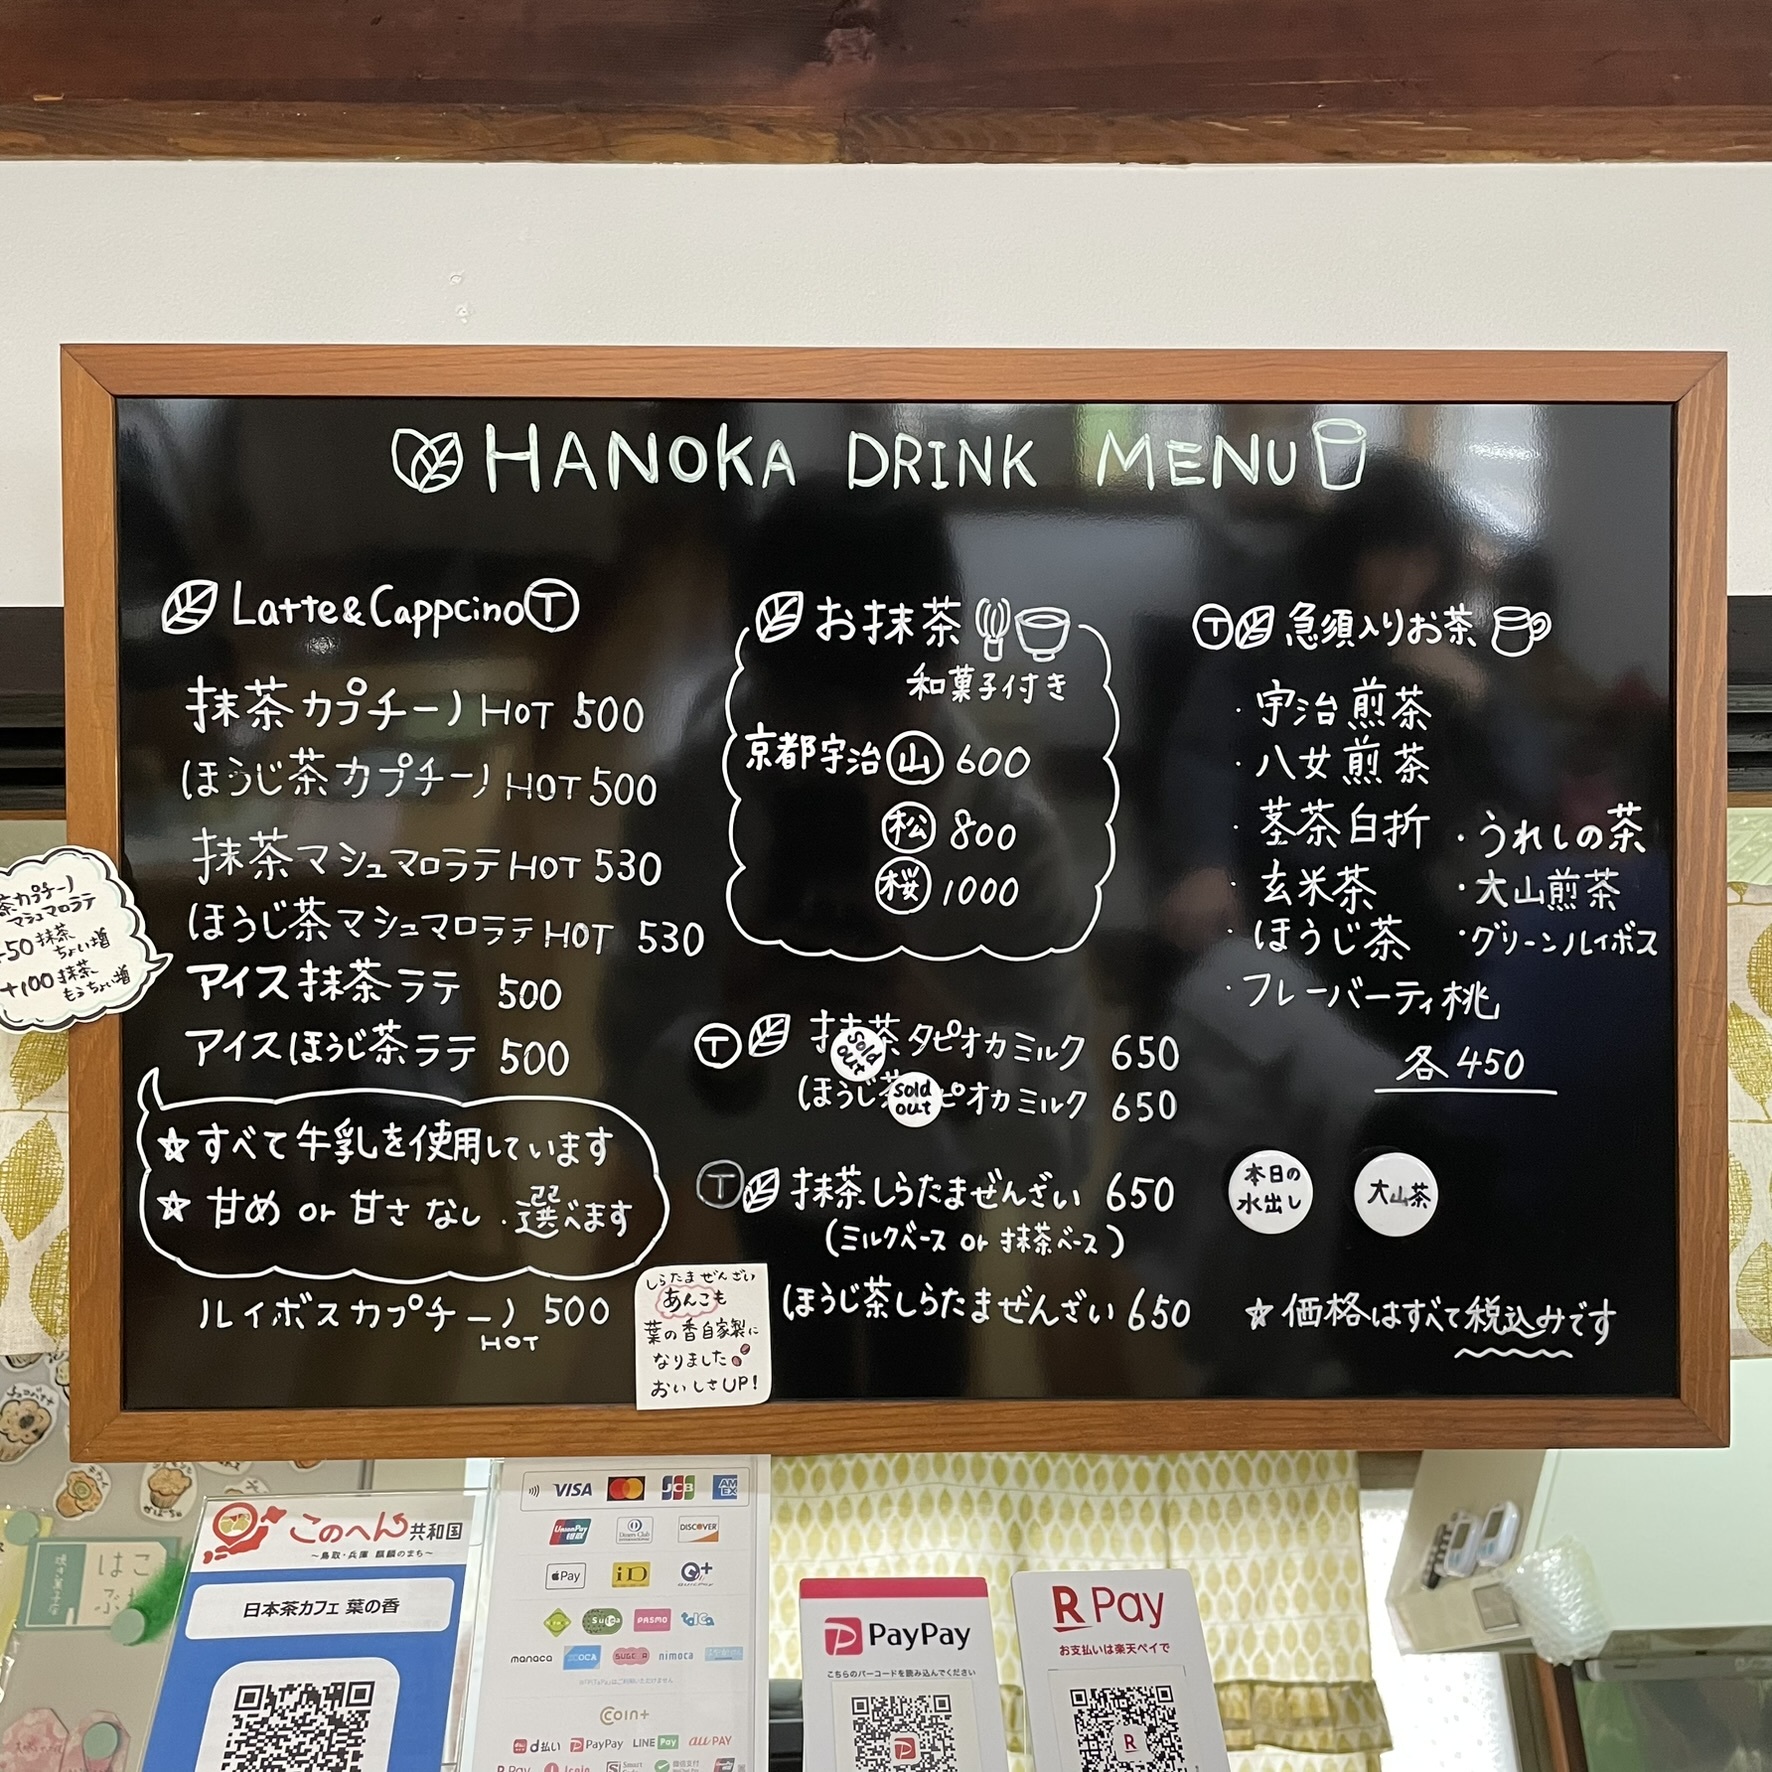 HANOKA DRINK MENU
Latte&Cappcino Ⓣ
抹茶カプチーノ HOT 500
ほうじ茶カプチーノ HOT 500
抹茶マシュマロラテ HOT 530
ほうじ茶マシュマロラテ HOT 530
アイス抹茶ラテ 500
アイスほうじ茶ラテ 500
☆すべて牛乳を使用しています
☆ 甘め or 甘さなし 選べます
ルイボスカプチーノ 500
HOT
茶カプチーノ
マシュマロラテ
+50 抹茶
ちょい増
+100 抹茶
もうちょい増
お抹茶
和菓子付き
京都宇治 山 600
松 800
桜 1000
Ⓣ 抹茶タピオカミルク 650
sold out
ほうじ茶ピオカミルク 650
sold out
Ⓣ 抹茶しらたまぜんざい 650
(ミルクベース or 抹茶ベース)
ほうじ茶しらたまぜんざい 650
しらたまぜんざい
あんこも
葉の香自家製に
なりました
おいしさUP!
Ⓣ 急須入りお茶
・宇治煎茶
・八女煎茶
・茎茶白折
・うれしの茶
・玄米茶
・大山煎茶
・ほうじ茶
・グリーンルイボス
・フレーバーティ桃
各450
本日の
水出し
大山茶
☆価格はすべて税込みです
このへん共和国
～鳥取・兵庫 麒麟のまち～
日本茶カフェ 葉の香
VISA
JCB
AMEX
UnionPay
Diners Club
DISCOVER
Pay
iD
QUICPay
Suica
PASMO
manaca
ICOCA
SUGOCA
nimoca
Coin+
d払い PayPay LINE Pay au PAY
R Pay
PayPay
こちらのバーコードを読み込んでください
R Pay
お支払いは楽天ペイで